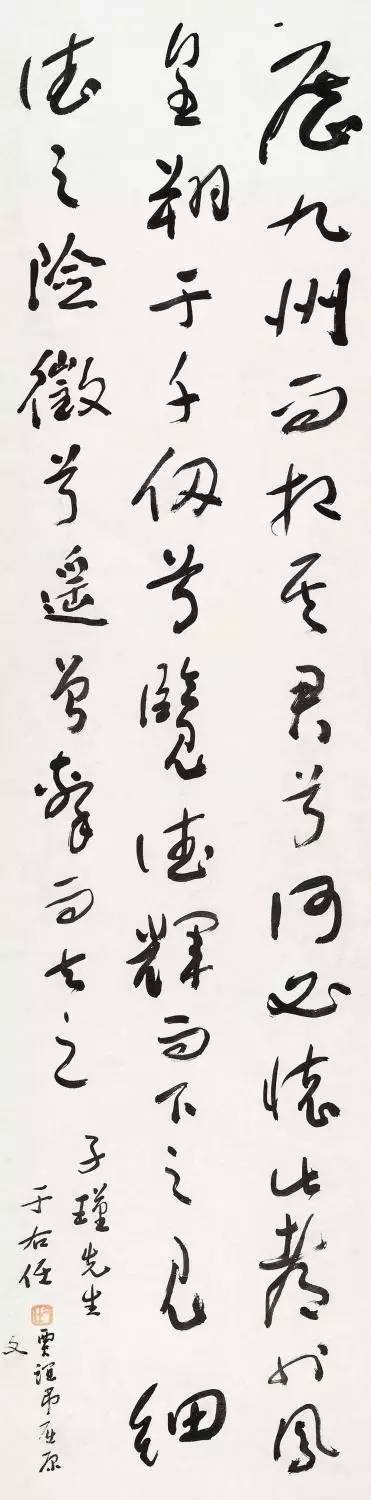 歷九州而相其君兮何必懷此都也鳳
皇翔于千仞兮覽德輝而下之見細
德之險徵兮遙曾擊而去之
子瑾先生
于右任
賈誼弔屈原
文